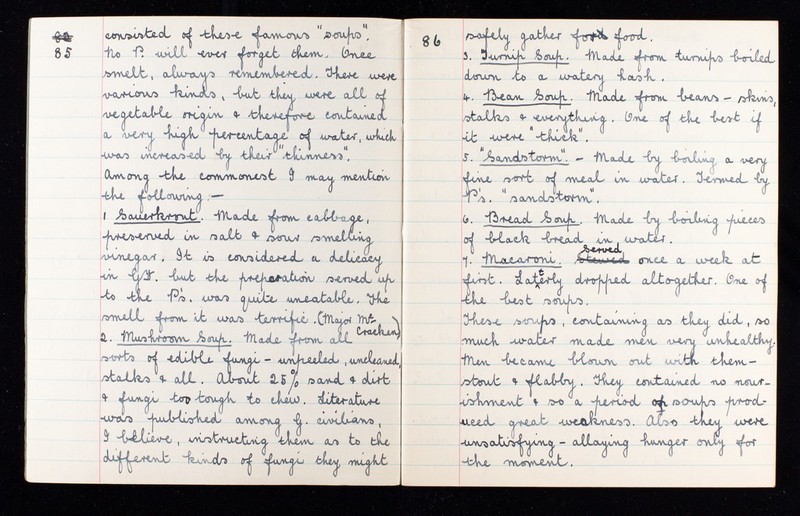 84
85
consisted of these famous "soups".
No P. will ever forget them. Once
smelt, always remembered. There were
various kinds, but they were all of
vegetable origin & therefore contained
a very high percentage of water, which
was increased by their "thinness".
Among the commonest I may mention
the following:—
1 Sauerkront. Made from cabbage,
preserved in salt & sour smelling
vinegar. It is considered a delicacy
in GY. but the preparation served up
to the P's. was quite uneatable. The
smell from it was terrific. (Major Mc-
Cracken)
2. Mushroom Soup. Made from all
sorts of edible fungi - unpeeled, uncleaned,
stalks & all. About 25% sand & dirt
& fungi too tough to chew. Literature
was published among G. civilians,
I believe, instructing them as to the
different kinds of fungi they might
86
safely gather ford food.
3. Turnip Soup. Made from turnips boiled
down to a watery hash.
4. Bean Soup. Made from beans - skins,
stalks & everything. One of the best if
it were "thick".
5. "Sandstorm". - Made by boiling a very
fine sort of meal in water. Termed by
P's. "sandstorm".
6. Bread Soup. Made by boiling pieces
of black bread in water.
7. Macaroni. Stewed served once a week at
first. Latterly dropped altogether. One of
the best soups.
These soups, containing as they did, so
much water made men very unhealthy.
Men became blown out with them -
stout & flabby. They contained no nour-
ishment & so a period of soups prod-
uced great weakness. Also they were
unsatisfying - allaying hunger only for
the moment.